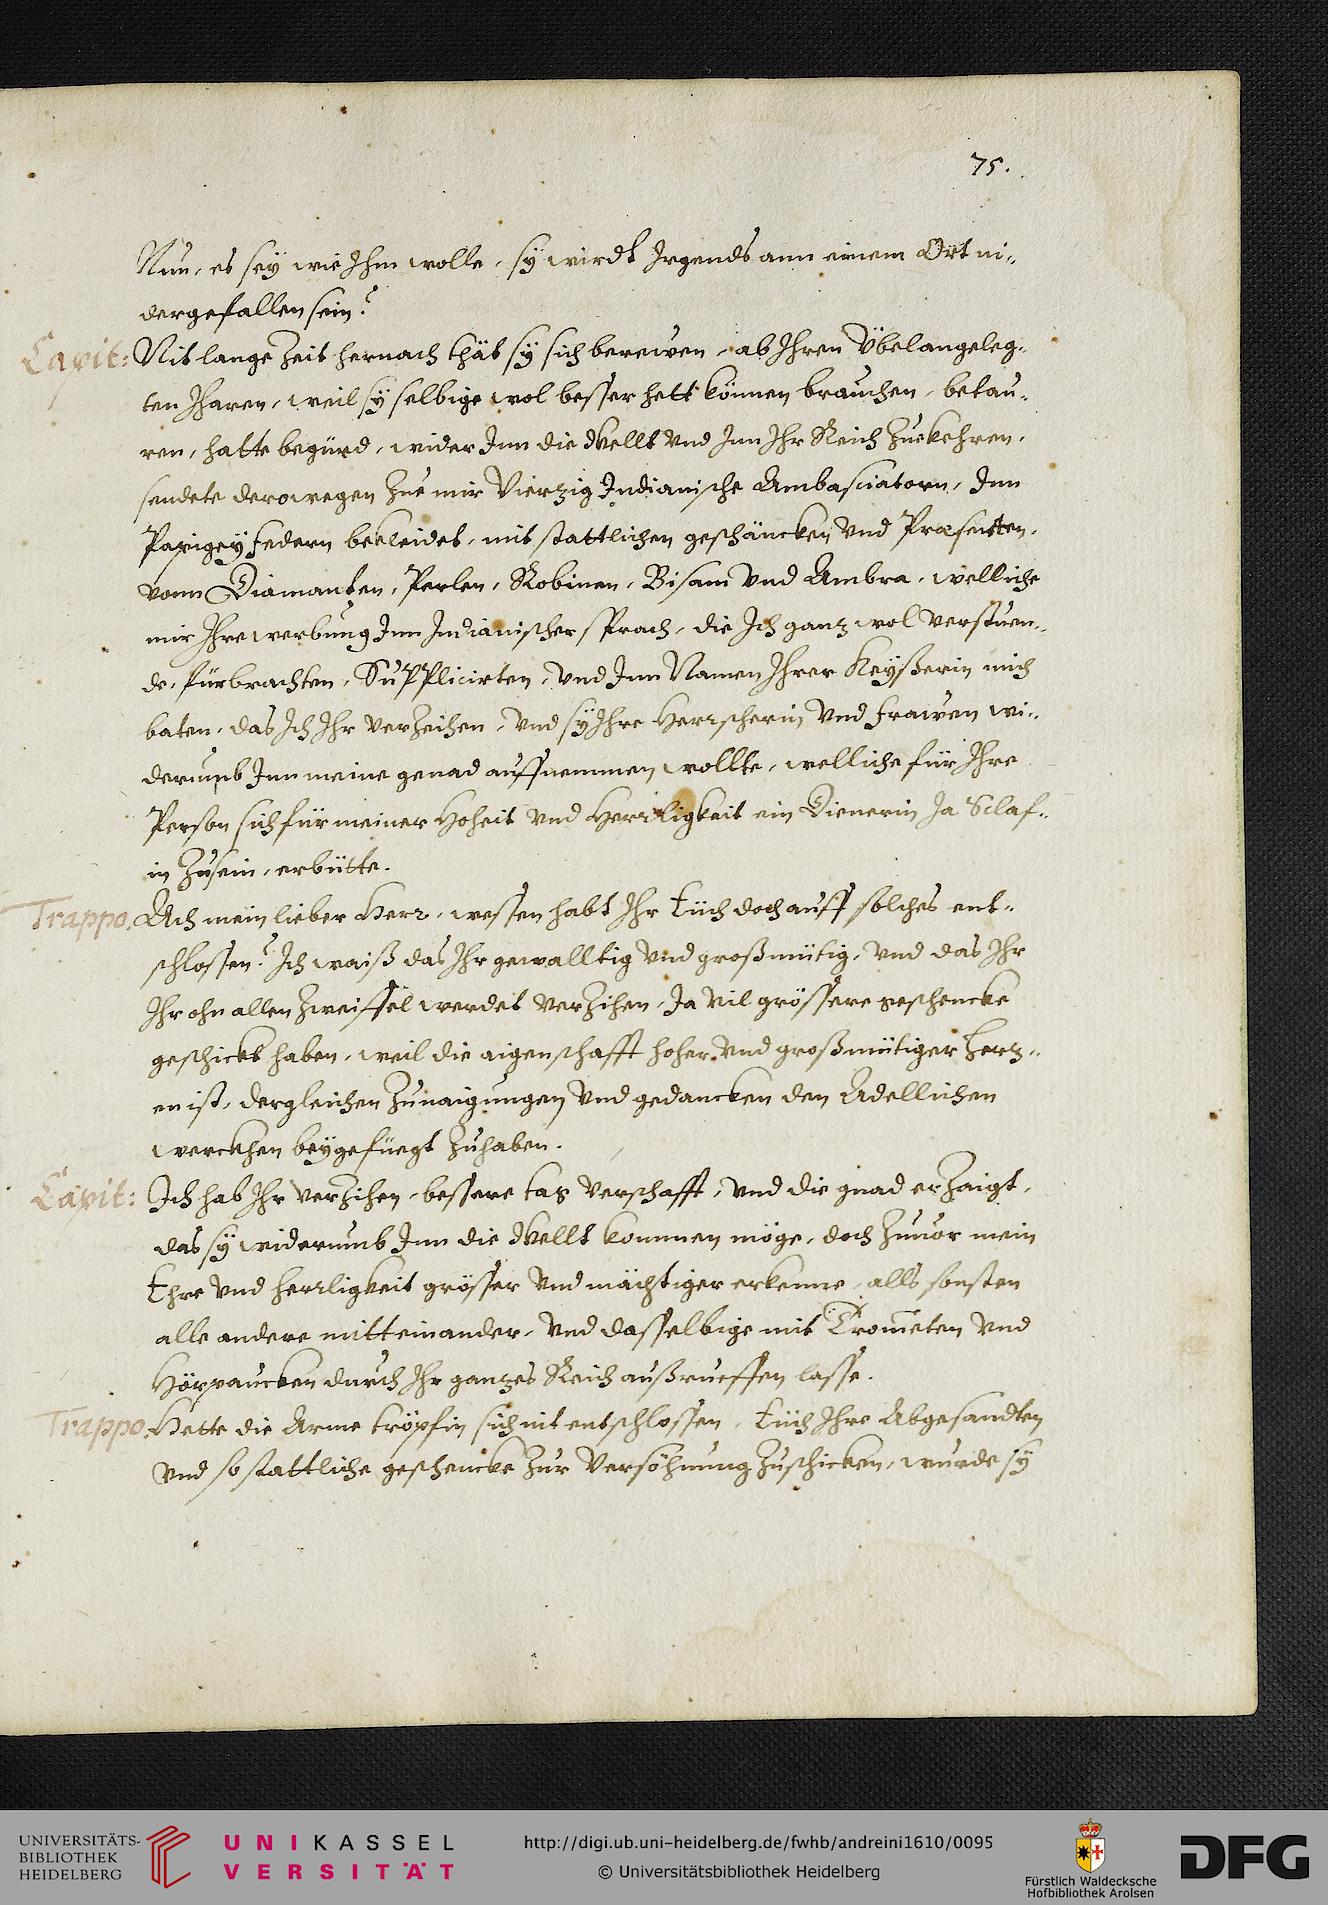 75.
Nun, es sey wie Ihm wolle, sÿ wirdt Irgends ann einem Ort ni-
dergefallen sein?
Capit: Nit lange Zeit hernach thät sÿ sich berewen, ab Ihren Übelangeleg-
ten Jharen, weil sÿ selbige wol besser hett können brauchen, betau-
ren, hatte begürd, wider Inn die Wellt vnd Inn Ihr Reich Zuekehren,
sendete derowegen Zue mir Vierzig Indianische Ambasciatorn, Inn
Papigeÿ Federn bekleidet, mit stattlichen geschäncken vnd Præsenten,
vonn Diamanten, Perlen, Robinen, Bisam vnd Ambra, welliche
mir Ihre werbung Inn Indianischer sprach, die Ich ganz wol verstuen-
de, fürbrachten, Supplicirten, vnd Inn Namen Ihrer Keyßerin mich
baten, das Ich Ihr verzeihen, vnd sÿ Ihre Herrscherin vnd Frawen wi-
derumb Inn meine genad auffnemmen wollte, welliche für Ihre
Person sich für meiner Hoheit vnd Herrligkeit ein Dienerin Ja Sclaf-
in Zusein, erbütte.
Trappo. Ach mein lieber Herr, wessen habt Ihr Eüch doch auff solches ent-
schlossen? Ich waiß das Ihr gewalltig vnd großmütig, vnd das Ihr
Ihr ohn allen Zweiffel werdet verzihen, Ja vil grössere geschencke
geschickt haben, weil die aigenschafft hoher vnd großmütiger Herz-
en ist, dergleichen Zunaigungen vnd gedancken den Adellichen
werckhen beÿgefüegt Zuhaben.
Capit: Ich hab Ihr verzihen, bessere tag verschafft, vnd die gnad erzaigt,
das sÿ widerumb Inn die Wellt kommen möge, doch Zuuor mein
Ehre vnd herrligkeit grösser vnd mächtiger erkenne, alls sonsten
alle andere mitteinander, vnd dasselbige mit Trom̃eten vnd
Hörpaucken durch Ihr ganzes Reich außrueffen lasse.
Trappo. Hette die Arme tröpfin sich nit entschlossen, Eüch Ihre Abgesandten
vnd so stattliche geschencke Zur Versöhnung Zuschicken, wurde sÿ
UNIVERSITÄTS-
BIBLIOTHEK
HEIDELBERG
UNIKASSEL
VERSITÄT
http://digi.ub.uni-heidelberg.de/fwhb/andreini1610/0095
© Universitätsbibliothek Heidelberg
Fürstlich Waldecksche
Hofbibliothek Arolsen
DFG